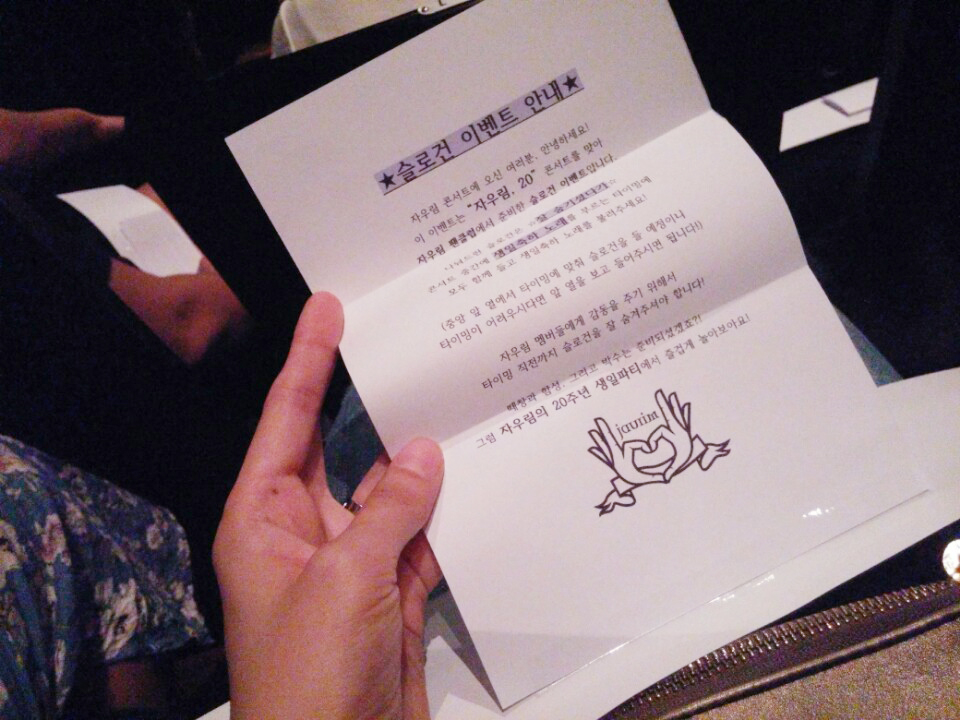 ★슬로건 이벤트 안내★
자우림 콘서트에 오신 여러분, 안녕하세요!
이 이벤트는 "자우림, 20" 콘서트를 맞아
자우림 팬클럽에서 준비한 슬로건 이벤트입니다.
나눠드린 슬로건은 잘 숨기셨다가
콘서트 중간에 생일축하 노래를 부르는 타이밍에
모두 함께 들고 생일축하 노래를 불러주세요!
(중앙 앞 열에서 타이밍에 맞춰 슬로건을 들 예정이니
타이밍이 어려우시다면 앞 열을 보고 들어주시면 됩니다!)
자우림 멤버들에게 감동을 주기 위해서
타이밍 직전까지 슬로건을 잘 숨겨주셔야 합니다!
떼창과 함성, 그리고 박수는 준비되셨겠죠?
그럼 자우림의 20주년 생일파티에서 즐겁게 놀아보아요!
jaurim